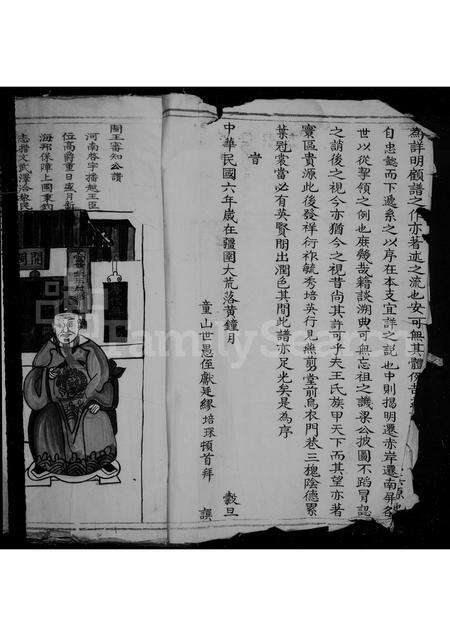 為詳明顧譜之作亦著述之流也安可無其體例
自忠懿而下遞系之以序在本支宜詳之說也中則揭明遷赤岸遷南屏名
世以從挈領之例也庶幾哉籍談溯典可無忘祖之譏梁公披圖不蹈冒認
之誚後之視今亦猶今之視昔尚其許可乎夫王氏族甲天下而其望亦著
寰區貴源此後發祥衍祚毓秀培英行見無剪堂前烏衣門巷三槐陰德累
葉冠裳當必有英賢朋出潤色其間此譜亦足光矣是為序
旹
中華民國六年歲在疆圉大荒落黃鐘月 穀旦
童山世愚侄獻廷繆培琛頓首拜 撰
閩王審知公讚
河南啓宇播越王臣
位高爵重日盛月新
海邦保障上國東鈞
志喬文武澤洽
FamilySearch